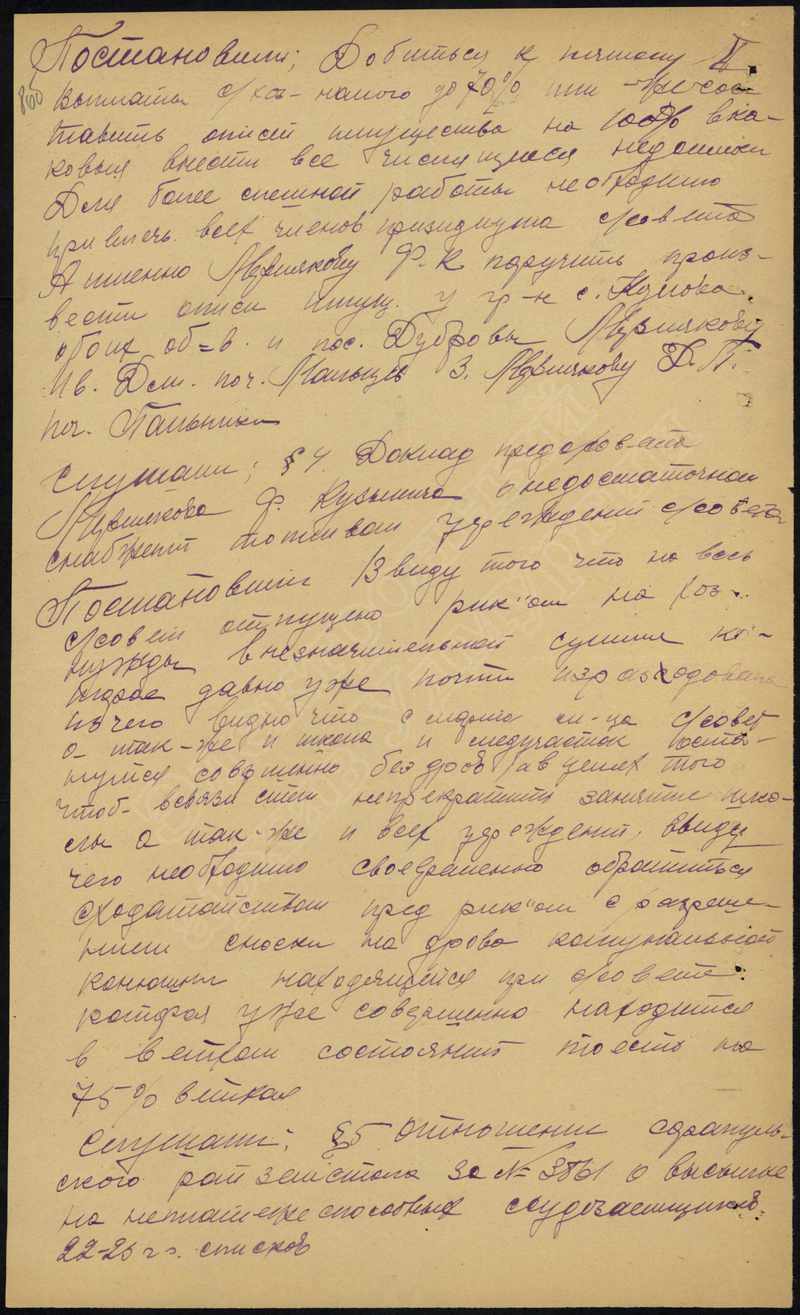 Постановили; Добиться к пятому XI.
865
выплаты с/хоз-налога до 70% или -же сос-
тавить описи имущества на 100% в ка-
ковыя внести все числящиеся недоимки
Для более спешной работы необходимо
привлечь всех членов президиума с/совета
А именно Мерзлякову Ф.К поручить произ-
вести описи имущ. у гр-н с.
обоих об=в. и пос. Дубровы Мерзлякову
Ив. Дем. поч. Мальцев 3. Мерзлякову Д.П.
поч. Пальники
Слушали; § 4. Доклад предс/сов-ата
Мерзлякова Ф. Кузьмича о недостаточном
снабжении топливом учреждений с/совета
Постановили Ввиду того что на весь
с/совет отпущено рик"ом на хоз-
нужды в незначительной сумме ко-
торая давно уже почти израсходована
из чего видно что с м-ца с/совет
а так-же и школа и медучасток оста-
нутся совершенно без дров, а в целях того
чтоб- всвязи стем непрекратить занятие шко-
лы а так-же и всех учреждений, ввиду
чего необходимо своевременно обратиться
сходатайством пред рик"ом о разреше-
нии сноски на дрова комунальной
конюшни находящейся при с/совете.
которая уже совершенно находится
в ветхом состоянии тоесть на
75% веткая
Слушали; § 5 отношение сарапуль-
ского райземстола за № 3861 о высылке
на неплатежеспособных ссудозаемщиков.
22-23 г.г. списков